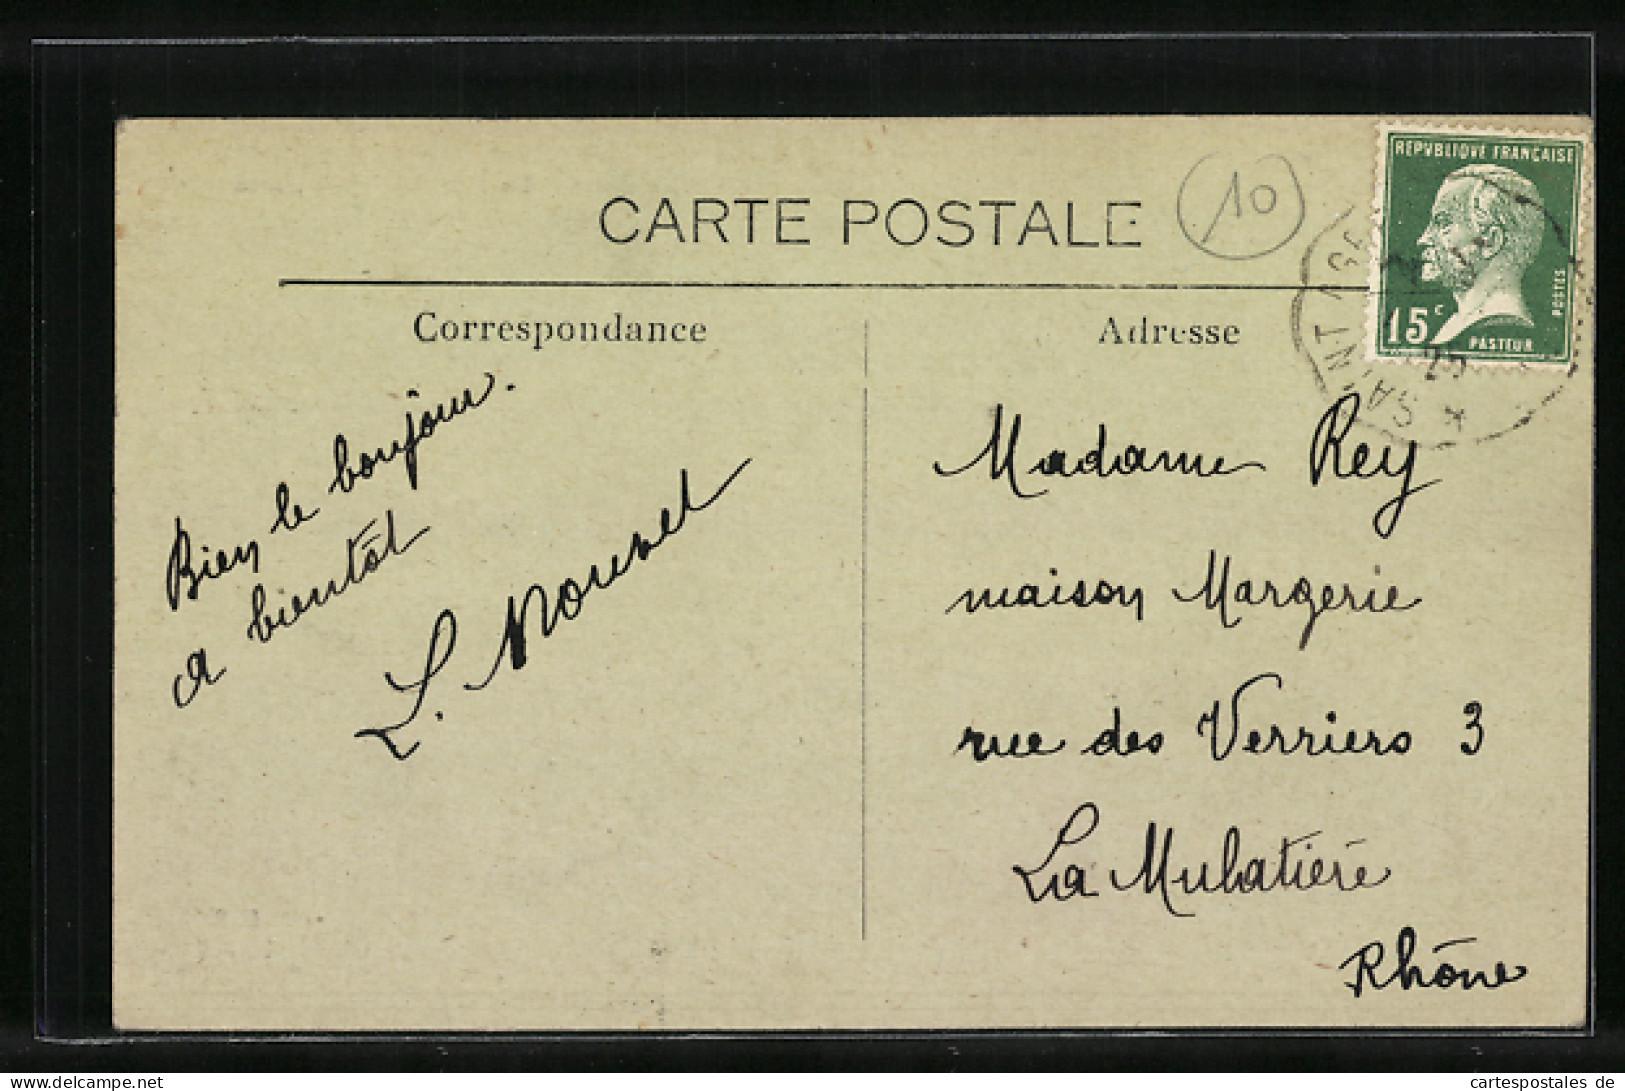 REPVBLIQVE FRANÇAISE
CARTE POSTALE
10
POSTES
15c
PASTEUR
SAINT
25
Correspondance
Adresse
Bien le bonjour.
a bientôt
L.
Madame Rey
maison Margerie
rue des Verriers 3
La Mulatière
Rhône
delcampe.net
cartespostales de